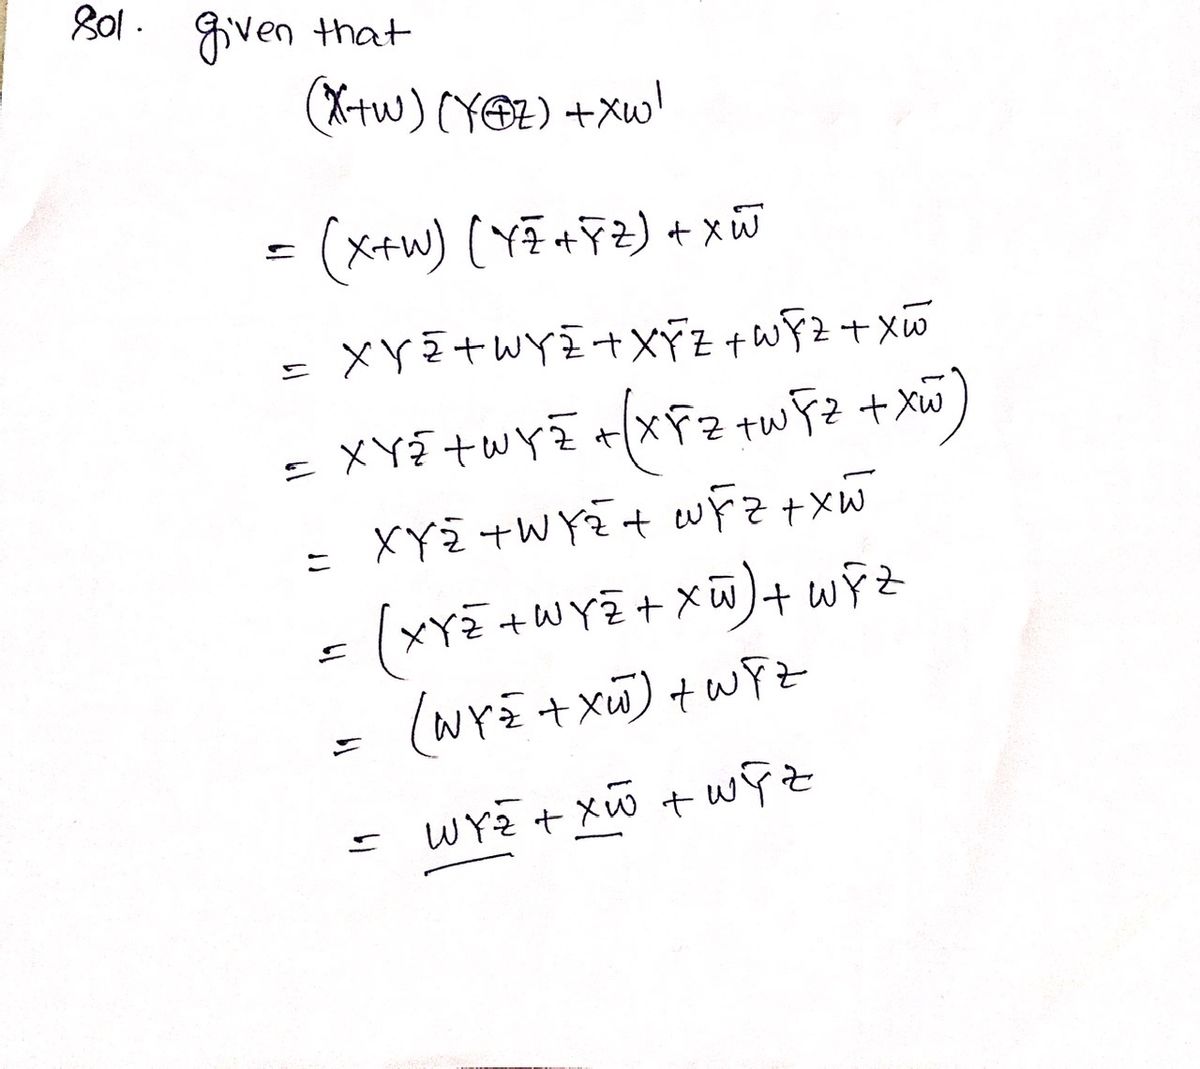 Sol. given that
(X+W) (Y⊕Z) + XW'
= (X+W) (YZ̅ + Y̅Z) + XW̅
= XYZ̅ + WYZ̅ + XY̅Z + WY̅Z + XW̅
= XYZ̅ + WYZ̅ + (XY̅Z + WY̅Z + XW̅)
= XYZ̅ + WYZ̅ + WY̅Z + XW̅
= (XYZ̅ + WYZ̅ + XW̅) + WY̅Z
= (WYZ̅ + XW̅) + WY̅Z
= WYZ̅ + XW̅ + WY̅Z